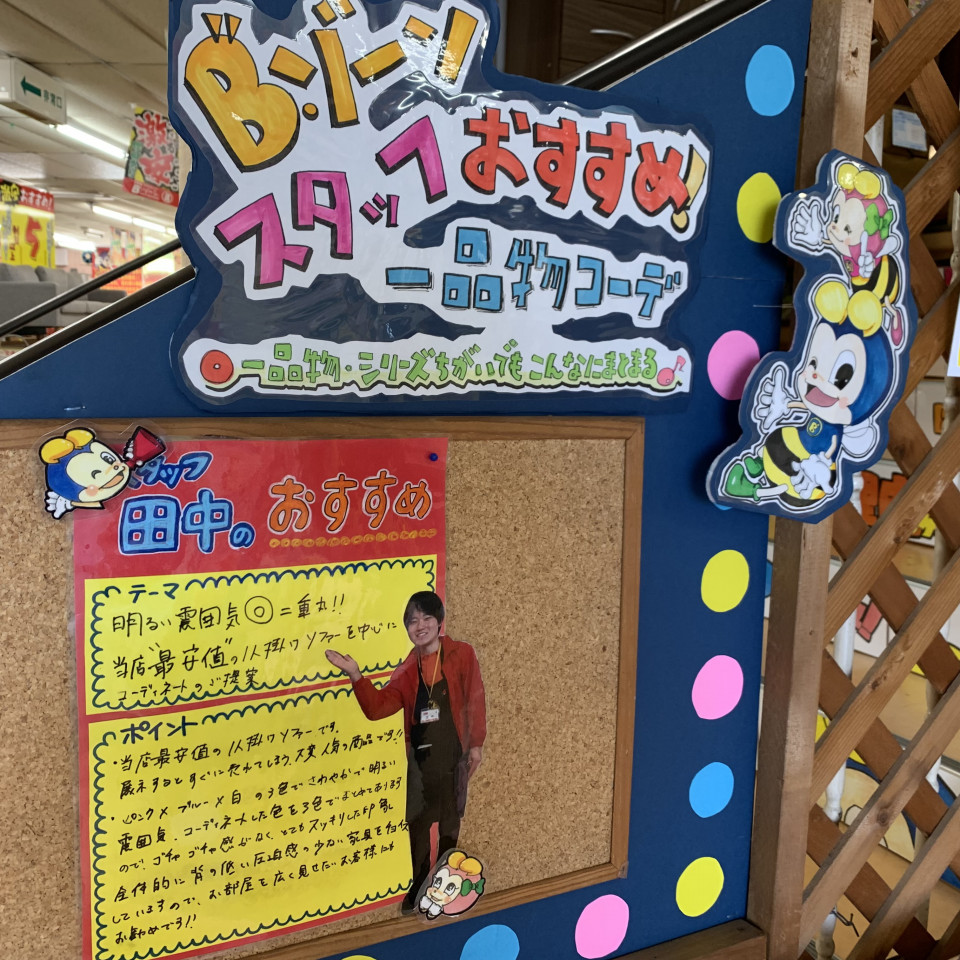 B・ゾーン
スタッフ おすすめ!
一品物コーデ
一品物・シリーズちがいでもこんなにまとまる♪
非常口
5
スタッフ
田中のおすすめ
テーマ
明るい雰囲気◎二重丸!!
当店"最安値"の1人掛けソファーを中心に
コーディネートのご提案
ポイント
・当店最安値の1人掛けソファーです。
展示するとすぐに売れてしまう、大変人気の商品です!!
・ピンク×ブルー×白の3色でさわやかで明るい
雰囲気。コーディネートした色を3色でまとめてあります
ので、ゴチャゴチャ感がなく、とてもスッキリした印象。
全体的に背の低い圧迫感の少ない家具を
していますので、お部屋を広く見せたいお客様にも
お勧めです!!